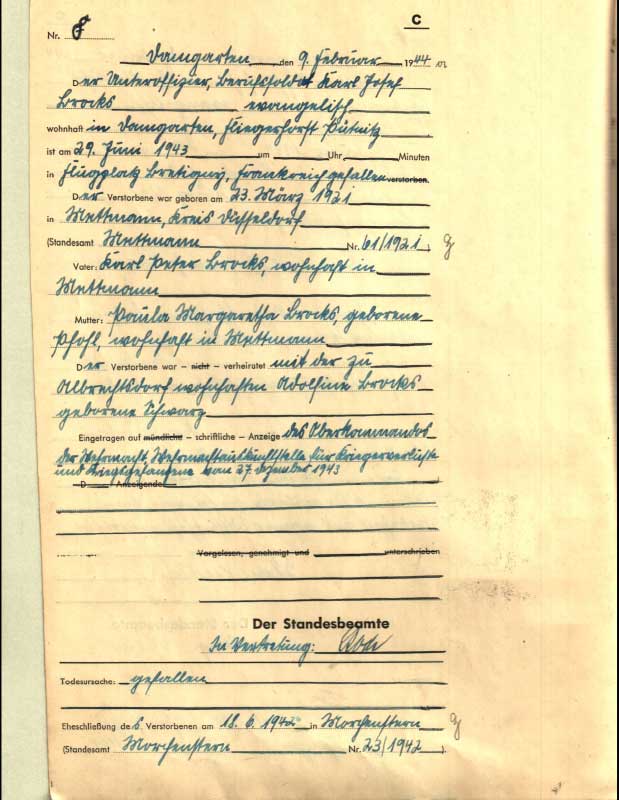 C
Nr. 8
Damgarten, den 9. Februar 1944
Der Unteroffizier, Berufssoldat Karl Josef
Brocks evangelisch
wohnhaft in Damgarten, Fliegerhorst Pütnitz
ist am 29. Juni 1943 um Uhr Minuten
in Flugplatz Bretigny, Frankreich gefallen verstorben.
Der Verstorbene war geboren am 23. März 1921
in Mettmann, Kreis Düsseldorf
(Standesamt Mettmann Nr. 61/1921)
Vater: Karl Peter Brocks, wohnhaft in
Mettmann
Mutter: Paula Margaretha Brocks, geborene
Pfohl, wohnhaft in Mettmann
Der Verstorbene war – nicht – verheiratet mit der zu
Albrechtsdorf wohnhaften Adolfine Brocks
geborene Schwarz
Eingetragen auf mündliche – schriftliche – Anzeige des Oberkommandos
der Wehrmacht, Wehrmachtauskunftstelle für Kriegerverluste
und Kriegsgefangene vom 27. Dezember 1943
D Anzeigende
Vorgelesen, genehmigt und unterschrieben
Der Standesbeamte
In Vertretung:
Todesursache: gefallen
Eheschließung des Verstorbenen am 18. 6. 1942 in Morchenstern
(Standesamt Morchenstern Nr. 23/1942)